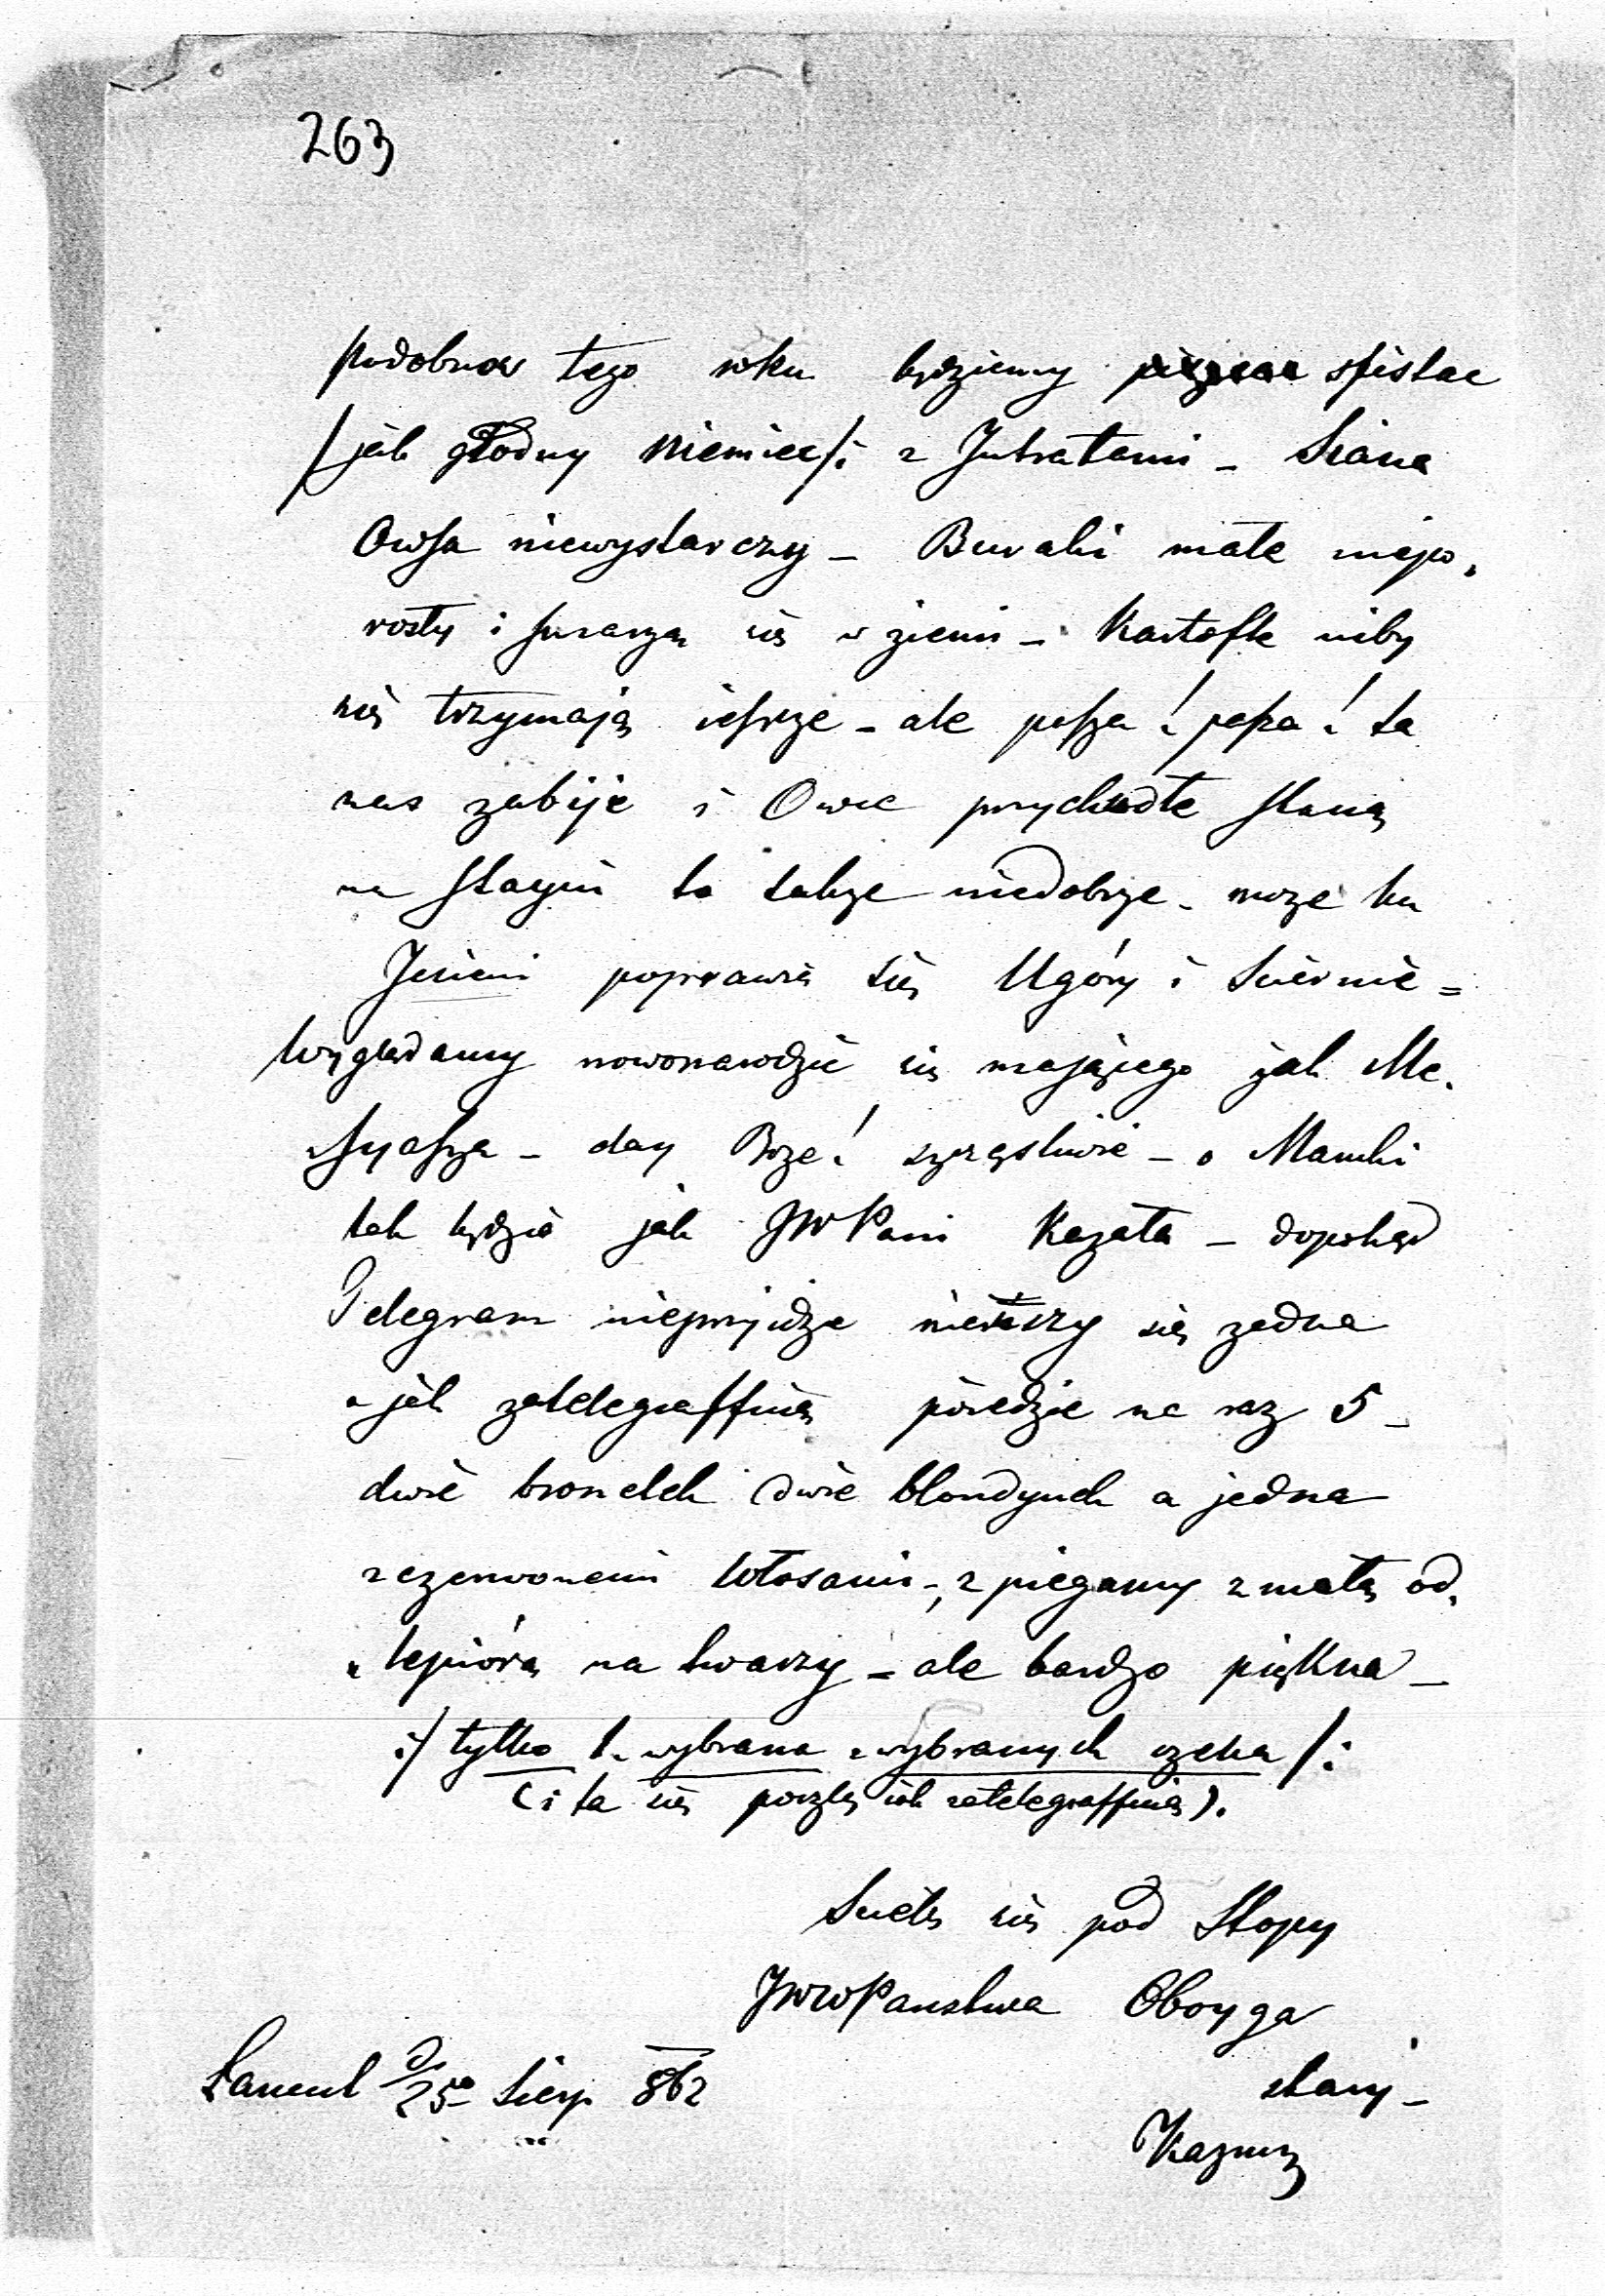 263
podobno w tego roku będziemy spistac
/jak głodny Niemiec/: z Intratami - Siana
Owsa niewystarczy - Buraki małe niepo„
rosły i smarzą się w ziemi - Kartofle niby
się trzymają ieszcze - ale pasza! pasza! ta
nas zabije i Owce przychudłe staną
na Stayni to także niedobrze - może ku
Jesieni poprawią się Ugóry i Sciernie =
Wyglądamy nowonarodzić się mającego jak Me„
„syasza - day Boże! szczęsliwie - o Mamki
tak będzie jak JWPani Kazała - dopokąd
Telegram nieprzyidzie nieruszy się żadna
a jak zatelegraffują poiedzie na raz 5 -
dwie bronetek dwie blondynek a jedna
z czerwonemi włosami -, z piegamy z małą od„
„ na twarzy - ale bardzo piękna -
:/ tylko 1. wybrana z wybranych czeka /:
(i ta się poszle jak zatelegraffują).
Sciele się pod Stopy
JWWPanstwa Oboyga
stary -
Łancut D. 25go Sierp 862
Kazmrz